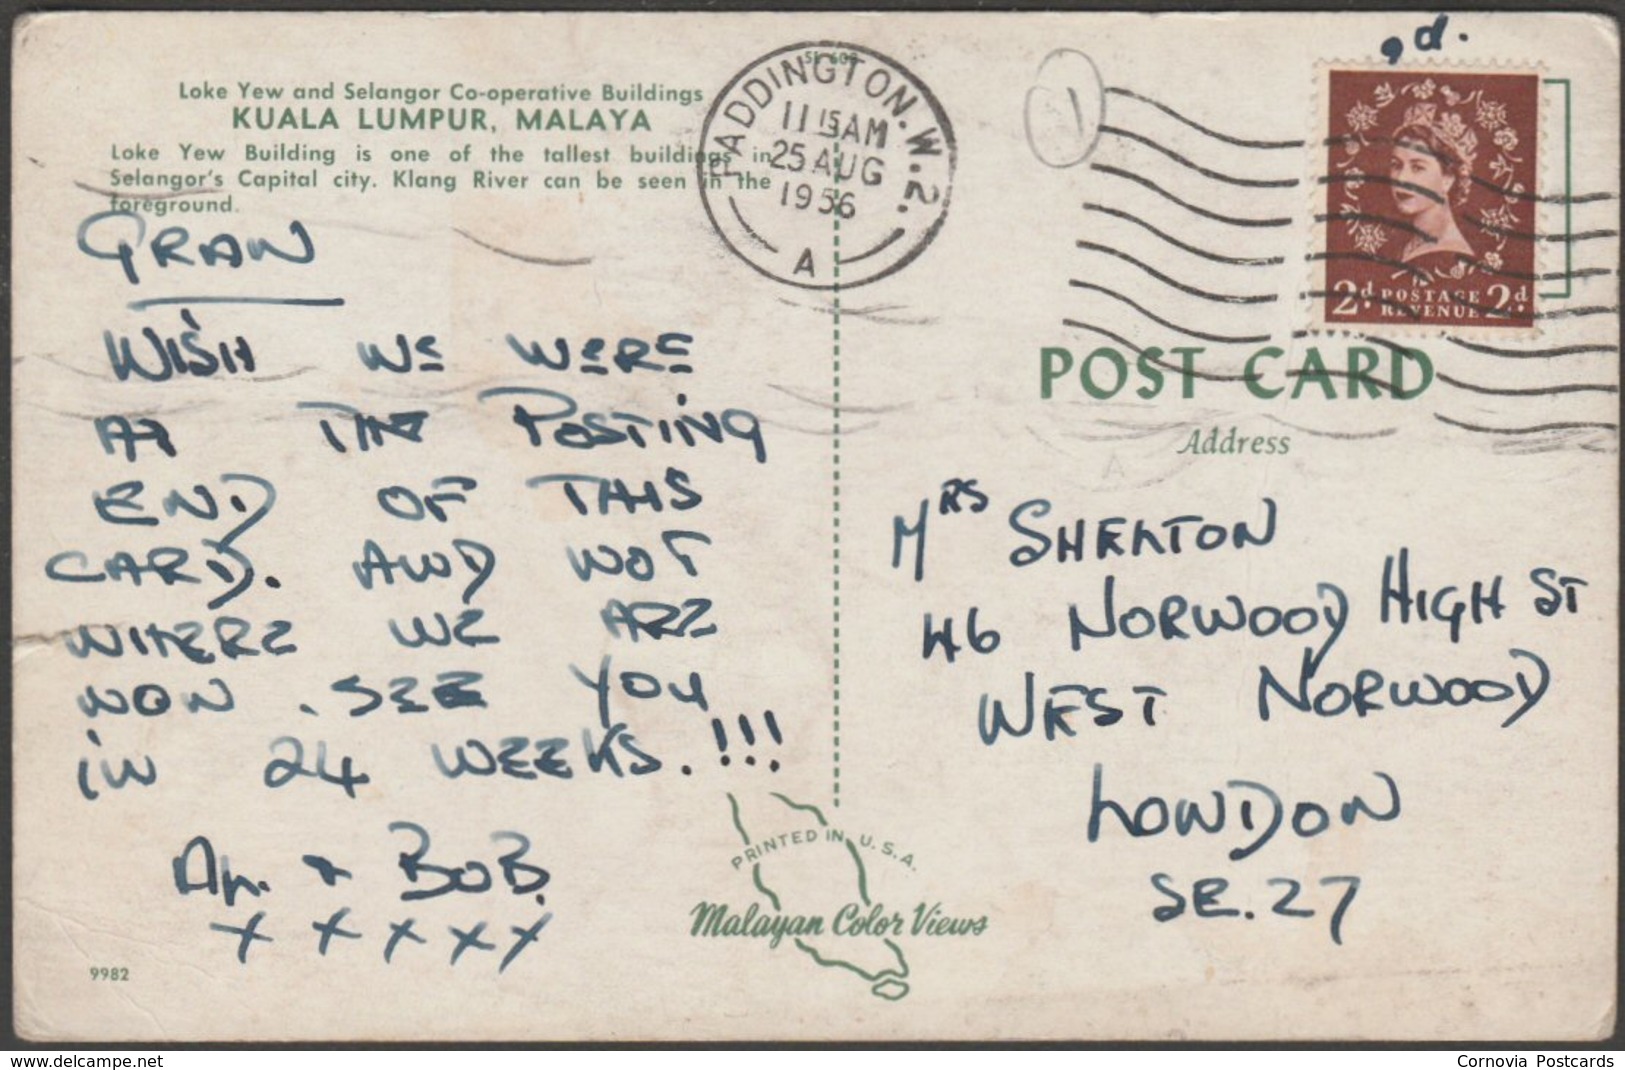 SL 602
9d.
Loke Yew and Selangor Co-operative Buildings
KUALA LUMPUR, MALAYA
Loke Yew Building is one of the tallest buildings in
Selangor's Capital city. Klang River can be seen in the
foreground.
PADDINGTON. W.2.
11 15 AM
25 AUG
1956
A
1
2d. POSTAGE REVENUE 2d.
POST CARD
Address
GRAN
WISH WE WERE
AT THE POSTING
END OF THIS
CARD. AND NOT
WHERE WE ARE
NOW. SEE YOU
iN 24 WEEKS.!!!
& BOB.
X X X X X
MRS SHELTON
46 NORWOOD HIGH ST
WEST NORWOOD
LONDON
SE.27
PRINTED IN U.S.A.
Malayan Color Views
9982
www.delcampe.net
Cornovia Postcards